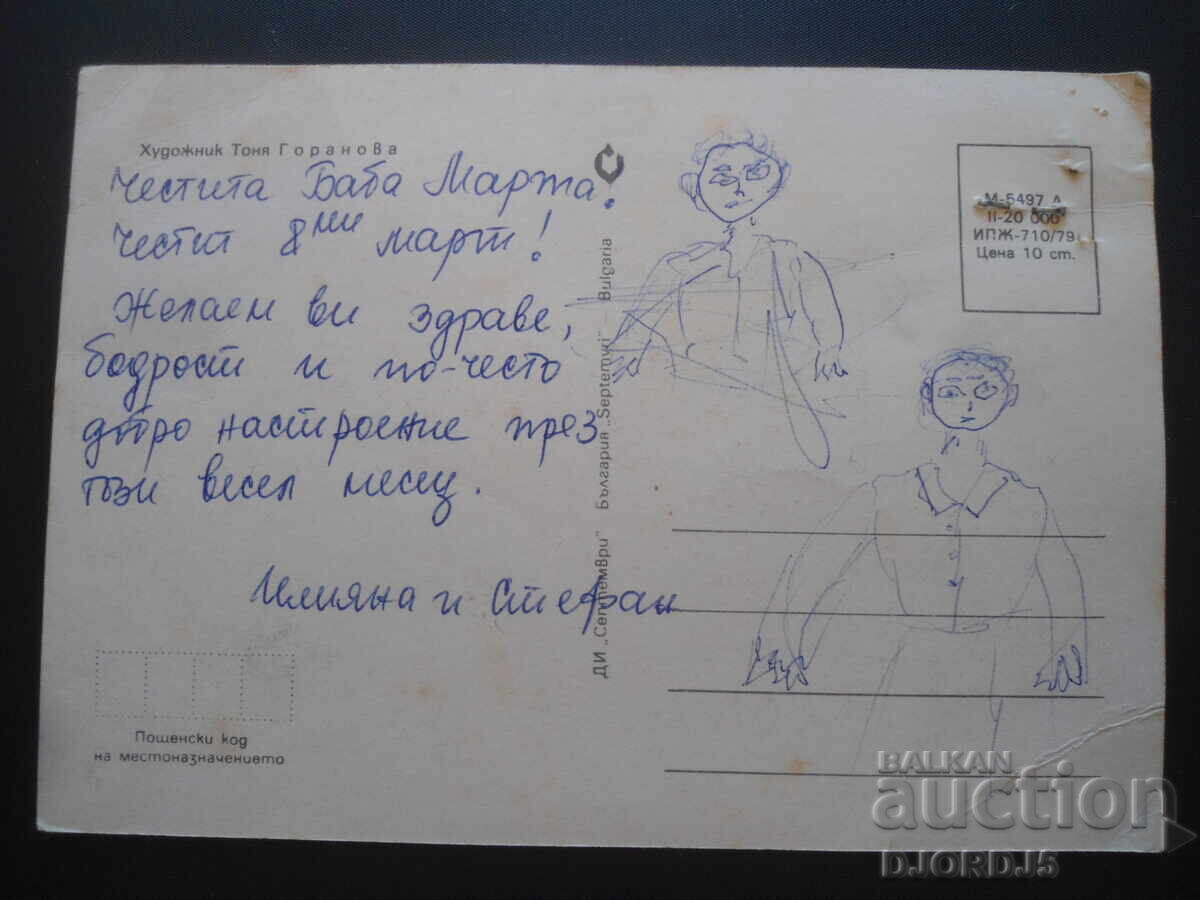 Художник Тоня Горанова
Честита Баба Марта!
Честит 8ми март!
Желаем ви здраве,
бодрост и по-често
добро настроение през
този весел месец.
Илияна и Стефан
Пощенски код
на местоназначението
ДИ „Септември" България „Septemvri" Bulgaria
М-5497 А
II-20 000
ИПЖ-710/79
Цена 10 ст.
BALKAN
auction
DJORDJ5